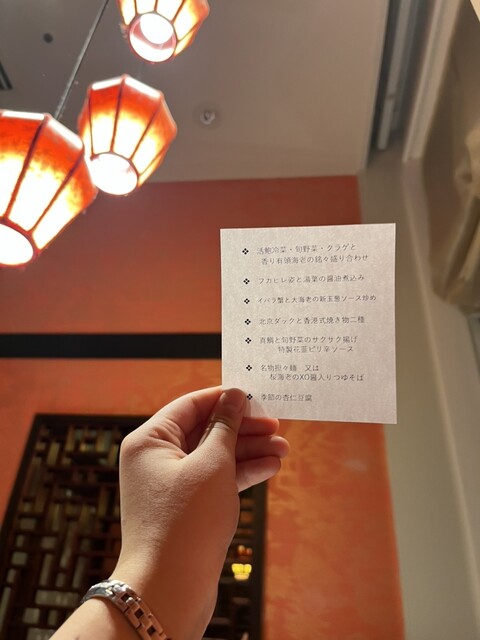 ❖ 活鮑冷菜・旬野菜・クラゲと
香り有頭海老の銘々盛り合わせ
❖ フカヒレ姿と湯葉の醤油煮込み
❖ イバラ蟹と大海老の新玉葱ソース炒め
❖ 北京ダックと香港式焼き物二種
❖ 真鯛と旬野菜のサクサク揚げ
特製花韮ピリ辛ソース
❖ 名物担々麺 又は
桜海老のXO醤入りつゆそば
❖ 季節の杏仁豆腐